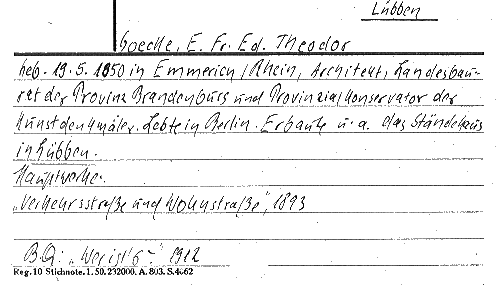 Lübben
Goecke, E. Fr. Ed. Theodor
geb. 19.5.1850 in Emmerich/Rhein, Architekt, Landesbau-
rat der Provinz Brandenburg und Provinzialkonservator der
Kunstdenkmäler. Lebte in Berlin. Erbaute u.a. das Ständehaus
in Lübben.
Hauptwerke:
„Verkehrsstraße und Wohnstraße", 1893
B.Q: „Wer ist's" 1912
Reg. 10 Stichnote. 1. 50. 232000. A. 803. S. 4662